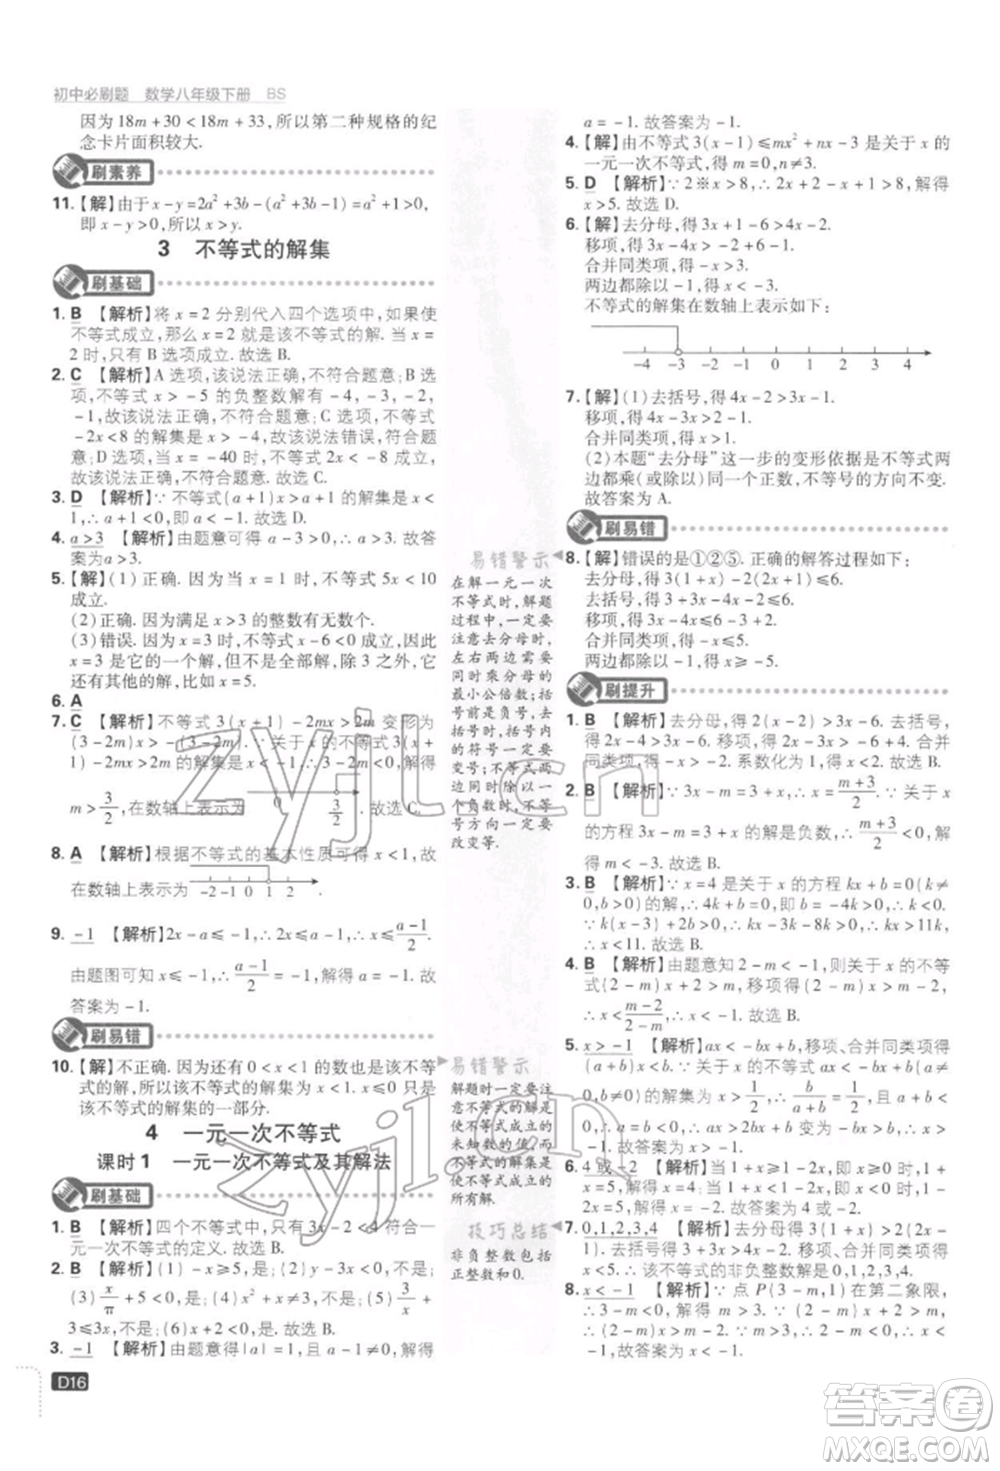 初中必刷题 数学八年级下册 BS
因为 18m+30<18m+33,所以第二种规格的纪
念卡片面积较大.
刷素养
11.【解】由于 x-y=2a²+3b-(a²+3b-1)=a²+1>0,
即 x-y>0,所以 x>y.
3 不等式的解集
刷基础
1. B 【解析】将 x=2 分别代入四个选项中,如果使
不等式成立,那么 x=2 就是该不等式的解.当 x=
2 时,只有 B 选项成立.故选 B.
2. C 【解析】A 选项,该说法正确,不符合题意;B 选
项,不等式 x>-5 的负整数解有-4,-3,-2,
-1,故该说法正确,不符合题意;C 选项,不等式
-2x<8 的解集是 x>-4,故该说法错误,符合题
意;D 选项,该说法正确,不符合题意.故选 C.
3. D 【解析】∵不等式(a+1)x>a+1 的解集为
x<1,∴a+1<0,即 a<-1.故选 D.
4. a>3 【解析】由题意可得 a-3>0,∴a>3.故答
案为 a>3.
5.【解】(1)正确.当 x=1 时,不等式 5x<10
成立.
(2)正确.因为满足 x<5 的整数有无数个.
(3)错误.当 x=3 时,不等式 x-6<0 成立,因此
x=3 是它的一个解,但该不等式的解,除 3 之外还
有其他实数,比如 x=5.
6. A
7. C 【解析】不等式 3(x+1)-2mx>3x 变形为
(3-2m)x>-3.∵关于 x 的不等式 3(x+
1)-2mx>2m 的解集是 x<-1,∴3-2m<0,解得
m>3/2,在数轴上表示为 3/2 .故选 C.
8. A 【解析】根据不等式的基本性质可得 x<1,故
在数轴上表示为 -2 -1 0 1 2 .故选 A.
9. -1 【解析】2x-a≤-1,∴2x≤a-1,∴x≤(a-1)/2.
由题图可知 x≤-1,∴(a-1)/2=-1,解得 a=-1.故
答案为-1.
刷易错
10.【解】不正确.因为还有 0<x<1 的数也是该不等
式的解,所以该不等式的解集为 x<1.而 x<0 只是
该不等式的解集的一部分.
4 一元一次不等式
课时 1 一元一次不等式及其解法
刷基础
1. B 【解析】四个不等式中,只有 3x-2<4x 符合一
元一次不等式的定义.故选 B.
2. B 【解析】(1)-2<0;(2)2x+3y<0;
(3)x/π+5>0;(4)x²-1;(5)x≠3;(6)x+
5≤0.其中一元一次不等式有 2 个.故选 B.
3. -1 【解析】由题意得|a|=1 且 a-1≠0,解得
D16
易错警示
在解一元一次
不等式时,解题
过程中,一定要
注意去分母时,
左右两边需要
同时乘分母的
最小公倍数;括
号前是负号,去
括号时,括号内
的符号一定要
变号;不等式两
边同时除以一
个负数时,不等
号方向一定要
改变等.
易错警示
解题时一定要注
意不等式的解是
使不等式成立的
未知数的值,而
不等式的解集是
使不等式成立的
所有解.
技巧总结
非负整数包括
正整数和0.
a=-1.故答案为-1.
4.【解】由不等式 3(x-1)≤mx²+nx-3 是关于 x 的
一元一次不等式,得 m=0,n≠3.
5. D 【解析】∵2※x>8,∴2x-2>8,解得
x>5.故选 D.
6.【解】去分母,得 3x+1-6>4x-2.
移项,得 3x-4x>-2-1+6.
合并同类项,得-x>3.
两边都除以-1,得 x<-3.
不等式的解集在数轴上表示如下:
-4 -3 -2 -1 0 1 2 3 4
7.【解】(1)去括号,得 4x-2>3x-1.
移项,得 4x-3x>2-1.
合并同类项,得 x>1.
(2)本题“去分母”这一步的变形依据是不等式两
边都乘(或除以)同一个正数,不等号的方向不变.
故答案为 A.
刷易错
8.【解】错误的是①②⑤.正确的解答过程如下:
去分母,得 3(1+x)-2(2x+1)≤6.
去括号,得 3+3x-4x-2≤6.
移项,得 3x-4x≤6-3+2.
合并同类项,得-x≤5.
两边都除以-1,得 x≥-5.
刷提升
1. B 【解析】去分母,得 2(x-2)>3x-6.去括号,
得 2x-4>3x-6.移项,得 2x-3x>-6+4.合并
同类项,得-x>-2.系数化为 1,得 x<2.故选 B.
2. B 【解析】∵3x-m=3,∴x=(m+3)/3.∵关于 x
的方程 3x-m=3 的解是负数,∴(m+3)/3<0,解得
m<-3.故选 B.
3. B 【解析】∵x=4 是关于 x 的方程 kx+b=0(k≠
0,b>0)的解,∴4k+b=0,即 b=-4k>0,∴k<0.
∵k(x-3)+2b>0,∴kx-3k-8k>0,∴kx>11k,
∴x<11.故选 B.
4. B 【解析】由题意知 2-m<0,∴关于 x 的不等
式(2-m)x+m>2,移项得(2-m)x>2-m,
∴x<1.故选 B.
5. x>-1 【解析】ax<-bx-b+a,移项、合并同类项得
(a+b)x<a-b.
0,x<1/2,
a+b<0,
6. 4 或-2 【解析】
x=5,
7. 0,1,2,3,4 【解析】去分母得 3(1+x)>2(2x-
1),去括号得 3+3x>4x-2,移项、合并同类项得
x<5,则该不等式的非负整数解为 0,1,2,3,4.
8. x<-1 【解析】∵点 P(3-m,1)在第二象限,
zyjl.cn
zyjl.cn
答案圈
MXQE.COM